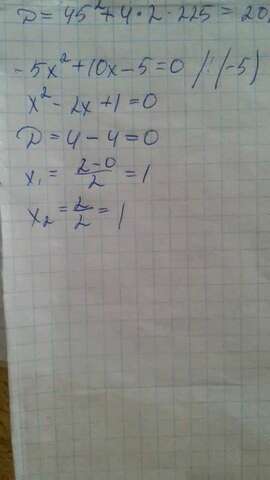 D = 45² + 4·2·225 = 20
-5x² + 10x - 5 = 0 /:(-5)
x² - 2x + 1 = 0
D = 4 - 4 = 0
x₁ = (2-0)/2 = 1
x₂ = 2/2 = 1